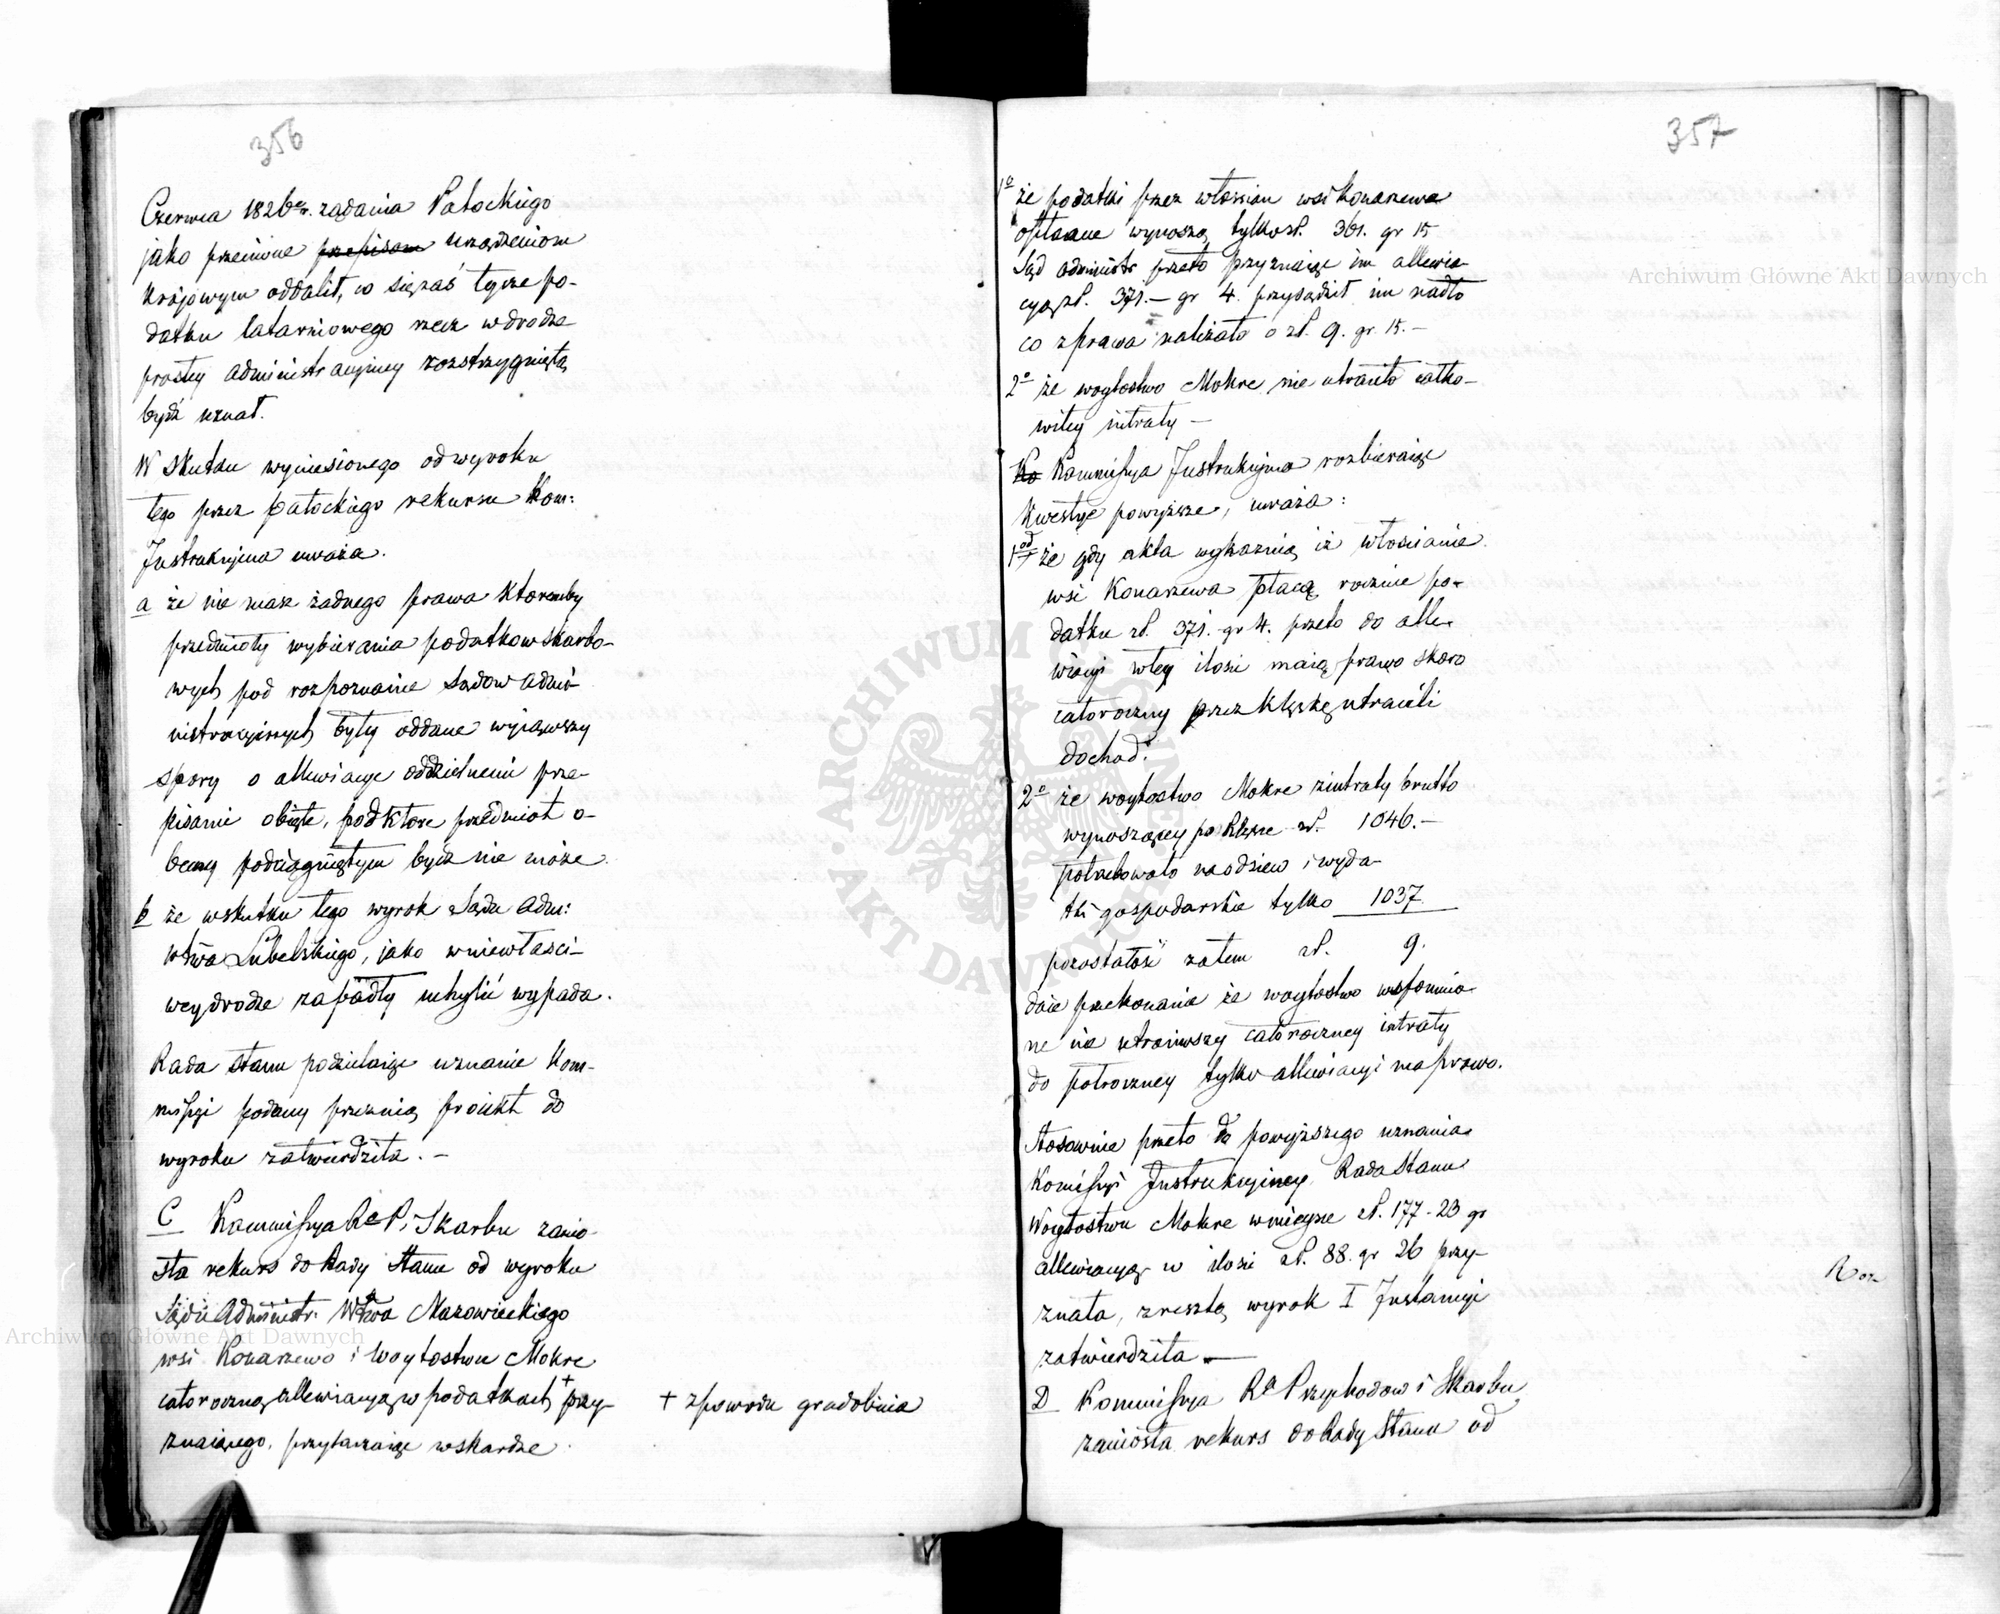 356
Czerwca 1826 r. żądania Patockiego
jako przeciwne przepisom urządzeniom
krajowym oddalił, co się zaś tycze po-
datku latarniowego rzecz w drodze
prostey administracyiney rozstrzygniętą
bydź uznał.
W skutku wyniesionego od wyroku
tego przez Patockiego rekursu Kom:
Instrukcyina uważa.
a że nie masz żadnego prawa ktoremby
przedmioty wybierania podatkow skarbo-
wych pod rozpoznanie Sądow admi-
nistracyinych były oddane wyiąwszy
spory o allewiacye oddzielnemi prze-
pisami obięte, pod ktore przedmiot o-
becny podciągniętym bydź nie może.
b że wskutku tego wyrok Sądu Adm:
wtwa Lubelskiego, jako w niewłaści-
wey drodze zapadły uchylić wypada.
Rada Stanu podzielaiąc uznanie Kom-
missyi podany przez nią proiekt do
wyroku zatwierdziła. –
C Kommissya R P i Skarbu zanio-
sła rekurs do Rady Stanu od wyroku
Sądu Administr: Wtwa Mazowieckiego
wsi Konarzewo i Woytostwu Mokre
całoroczną allewiacyą w podatkach + przy-
znaiącego, przytaczaiąc w skardze
+ z powodu gradobicia
357
1o że podatki przez włościan wsi Konarzewa
opłacane wynoszą tylko zł. 361. gr 15
Sąd administr przeto przyznaiąc im allewia-
cyą zł. 371.– gr 4. przysądził im nadto
co zprawa należało o zł. 9. gr. 15.–
2o że woytostwo Mokre nie utraciło całko-
witey intraty –
Ko Kommissya Instrukcyina rozbieraiąc
kwestye powyższe, uważa:
1od że gdy akta wykaznią iż włościanie
wsi Konarzewa płacą rocznie po-
datku zł. 371. gr 4. przeto do alle-
wiacyi wtey ilości maią prawo skoro
całoroczny przez klęskę utracili
dochod.
2o że woytostwo Mokre zintraty brutto
wynoszącey po klęsce zł. 1046.–
potrzebowało na odsiew i wyda-
tki gospodarskie tylko 1037.
pozostałość zatem zł. 9.
daie przekonanie że woytostwo wspomnio-
ne nie utraciwszy całoroczney intraty
do połroczney tylko allewiacyi ma prawo.
Stosownie przeto do powyższego uznania
Komissyi Instrukcyiney Rada Stanu
Woytostwu Mokre w mieysce zł. 177 - 23 gr
allewiacyą w ilości zł. 88. gr 26 przy-
znała, zresztą wyrok I Instancyi
zatwierdziła. —
D Kommissya R Przychodow i Skarbu
zaniosła rekurs do Rady Stanu od
Archiwum Główne Akt Dawnych
Archiwum Główne Akt Dawnych
ARCHIWUM GŁÓWNE AKT DAWNYCH